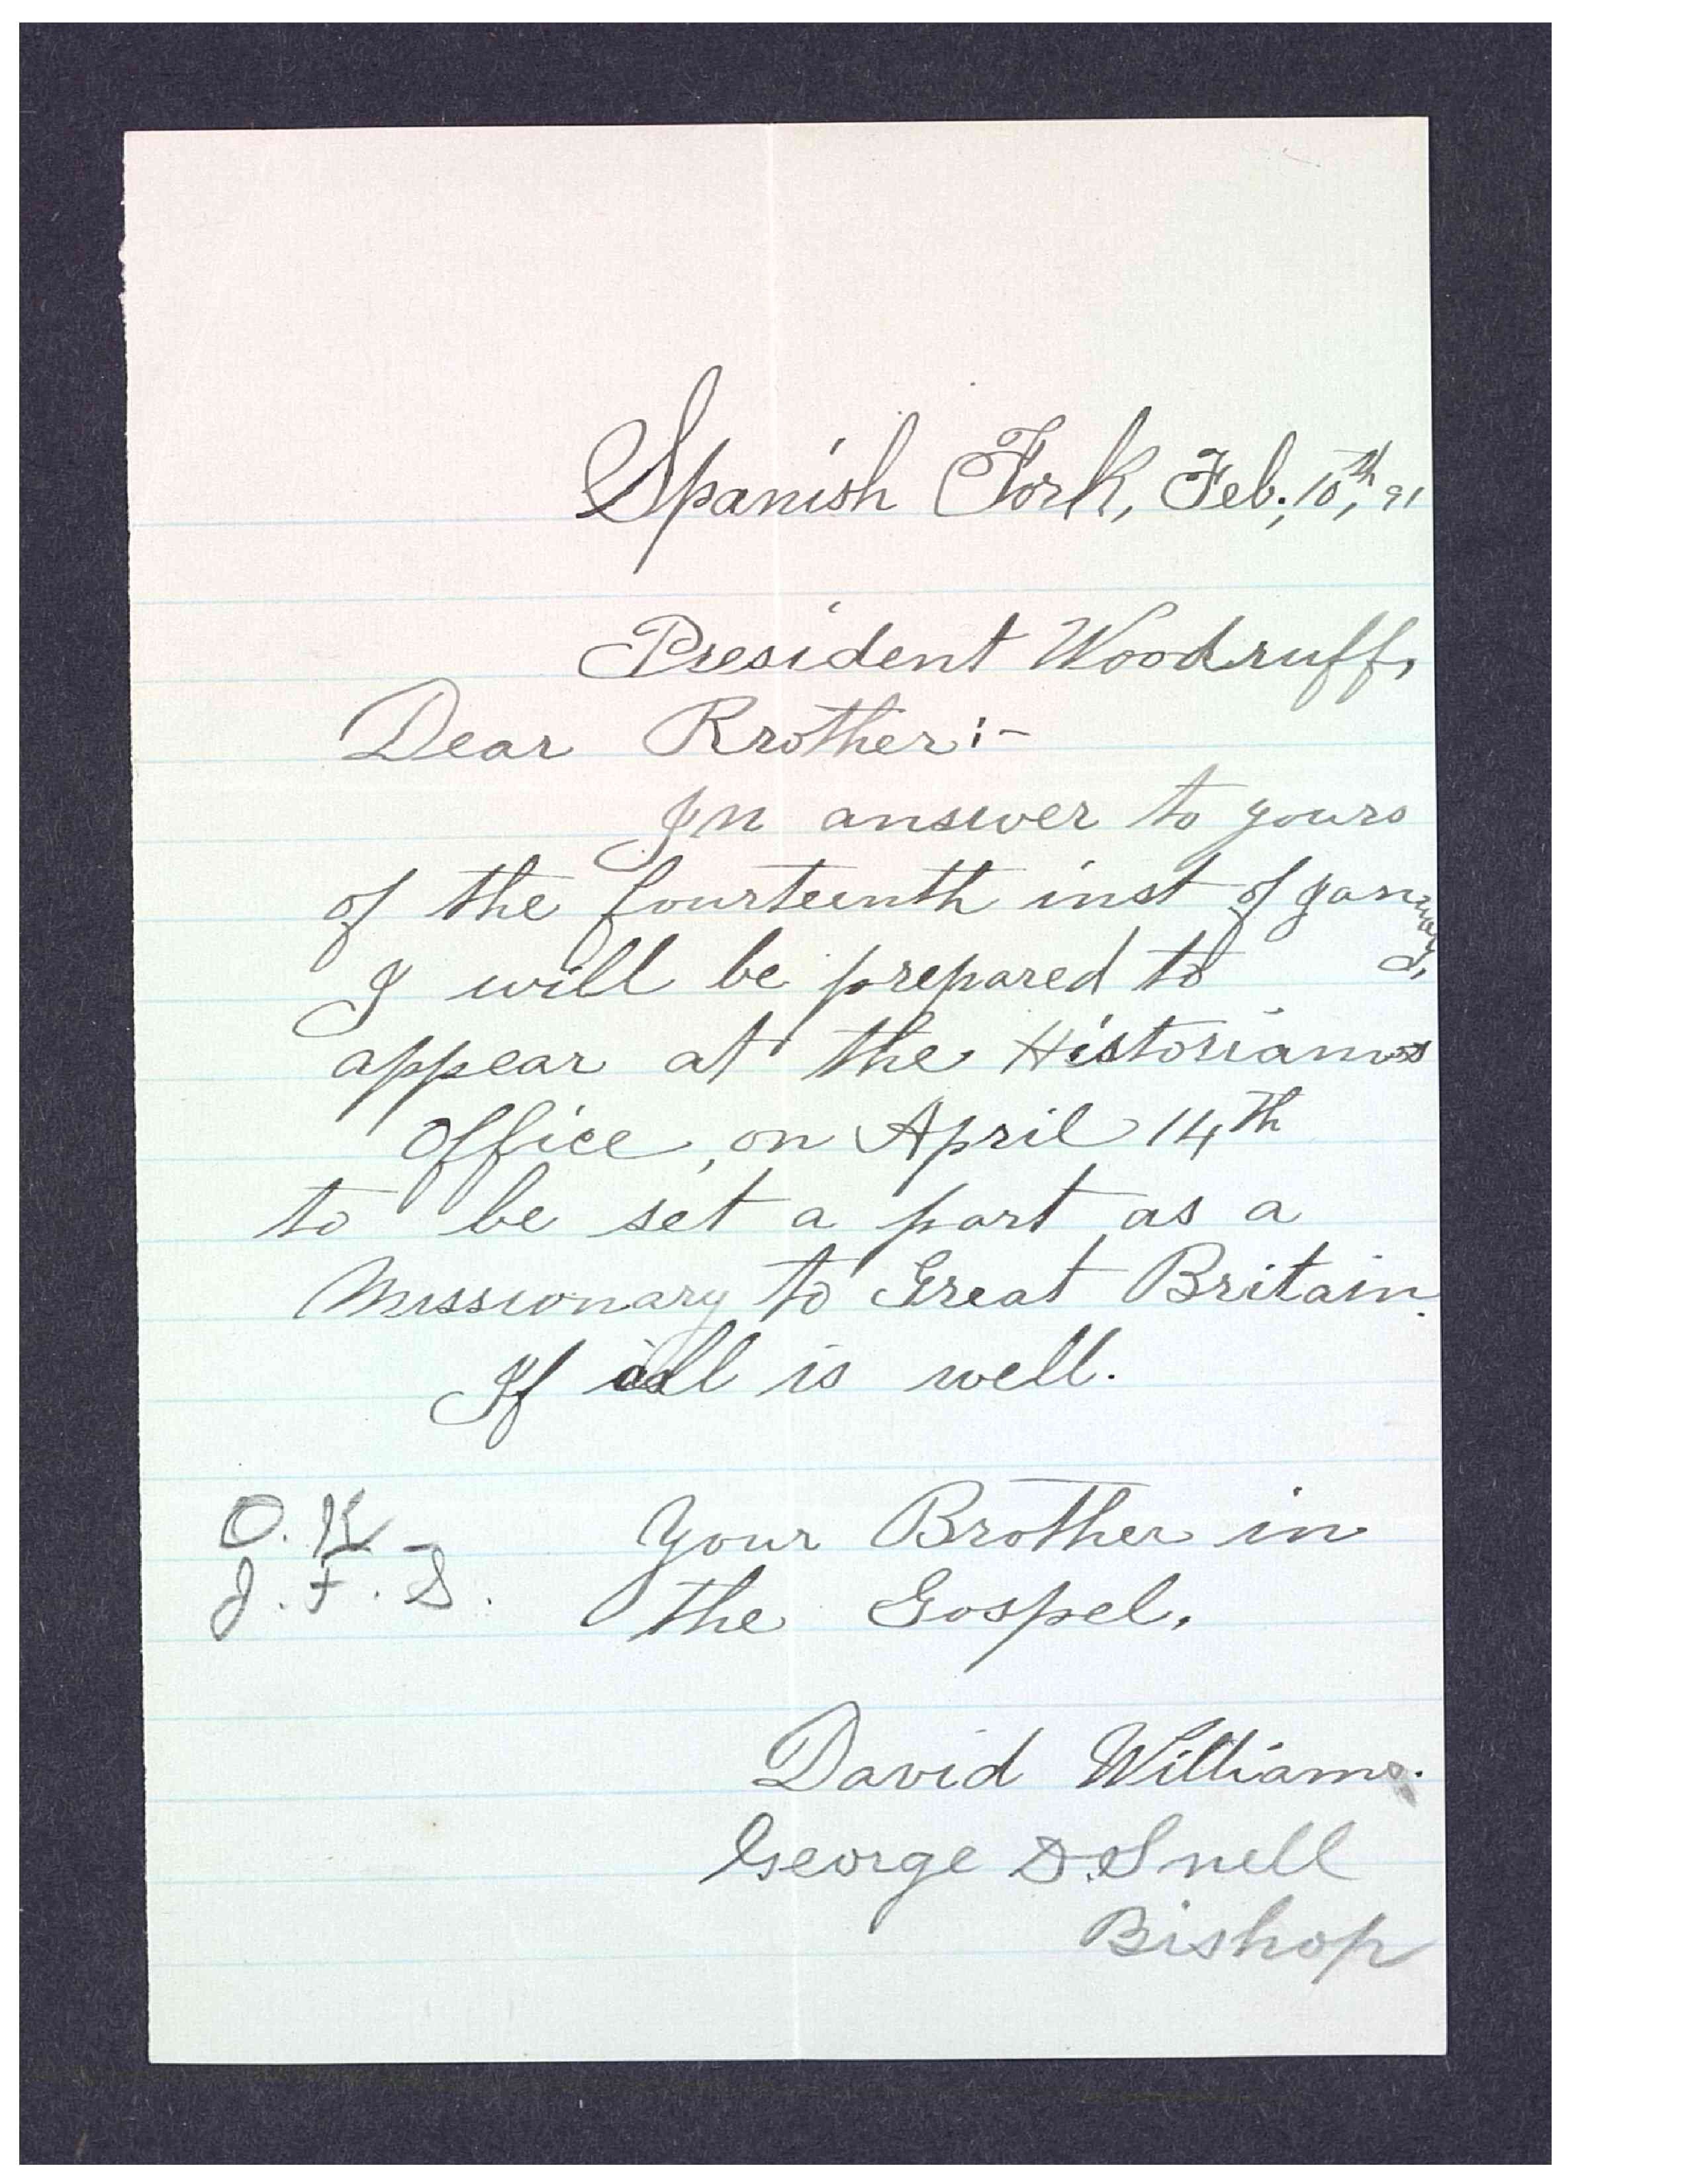 Spanish Fork, Feb; 10th, 91
President Woodruff,
Dear Brother:-
In answer to yours
of the fourteenth inst of January,
I will be prepared to
appear at the Historians
Office, on April 14th
to be set a part as a
Missionary to Great Britain.
If all is well.
O.K.
J.F.S.
Your Brother in
the Gospel.
David Williams.
George D. Snell
Bishop